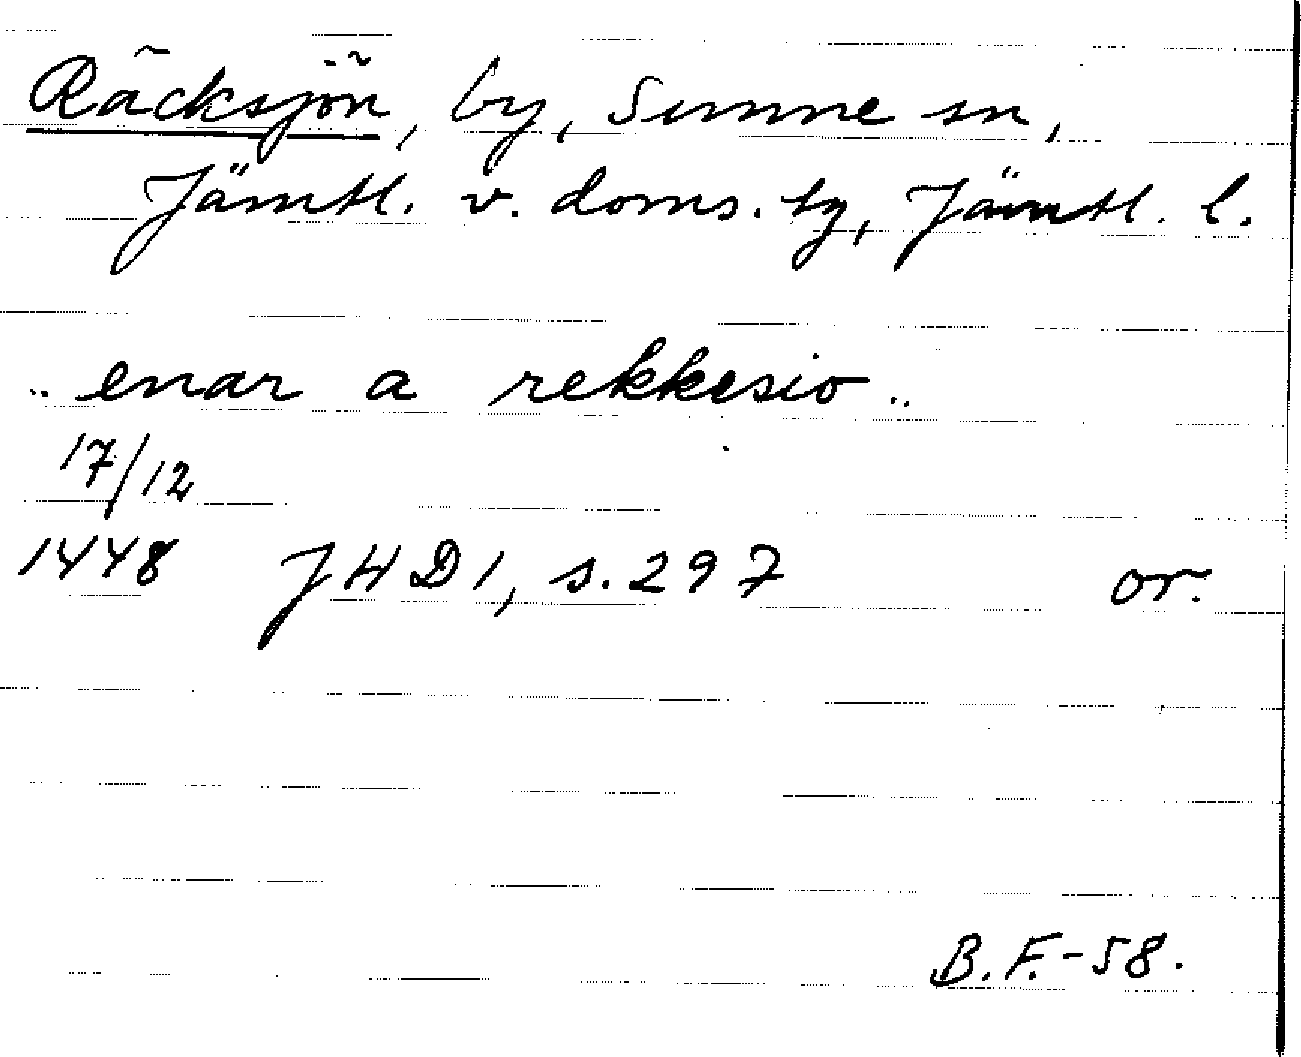 Räcksjön, by, Sunne sn,
Jämtl. v. doms. tg, Jämtl. l.
.. enar a rekkesio ..
17/12
1448 JHD1, s. 297 or.
B.F.-58.